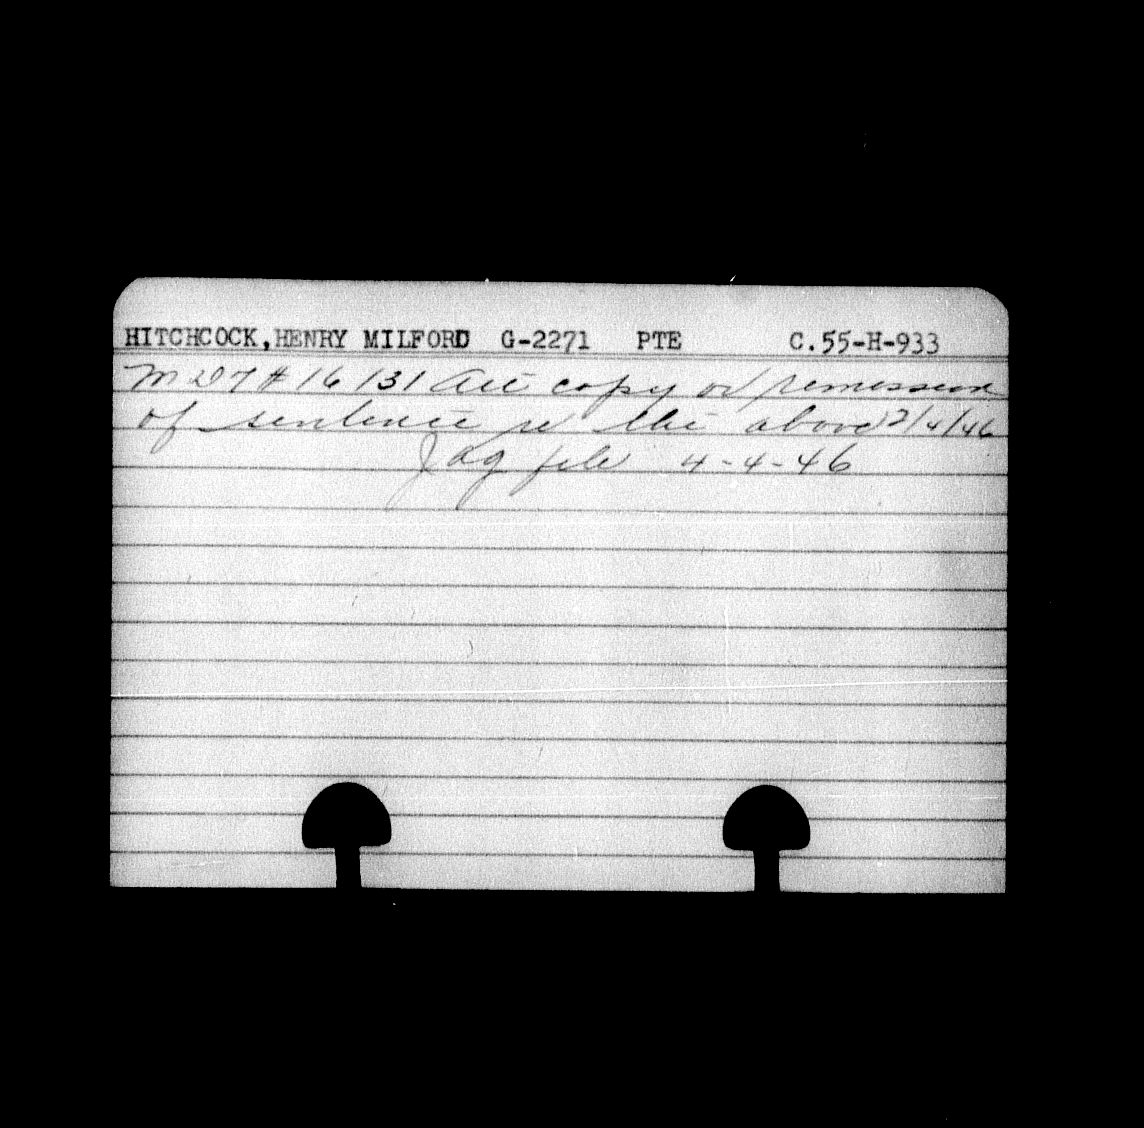 HITCHCOCK, HENRY MILFORD G-2271 PTE C.55-H-933
M D 7 # 16 131 Att copy of remission
of sentence re the above 2/4/46
Jag file 4-4-46